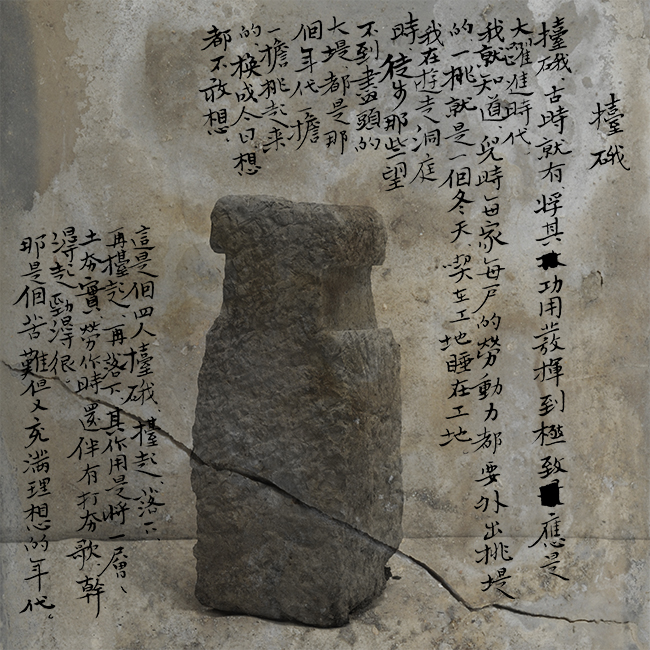 擡硪
擡硪古時就有,将其功用發揮到極致應是
大躍進時代。
我就知道,兒時每家每戶的勞動力都要外出挑堤
的,一挑就是一個冬天,喫在工地睡在工地。
我在遊走洞庭
時,徒步那些望
不到盡頭的
大堤都是那
個年代一擔
一擔挑起来
的,换成今日想
都不敢想。
這是個四人擡硪、擡起、落下、
再擡起、再落下、其作用是將一層、
土夯實,勞作時還伴有打夯歌,幹
得起勁得很。
那是個苦難但又充滿理想的年代。